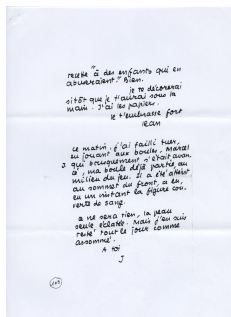 recette "à des enfants qui en
abuseraient". Bien.
je te décorerai
sitôt que je t'aurai sous la
main. J'ai les papiers.
Je t'embrasse fort
Jean
ce matin, j'ai failli tuer,
en jouant aux boules, Marcel
J. qui brusquement s'était avan
cé, ma boule déjà partie, au
milieu du jeu. Il a été atteint
au sommet du front, a eu,
en un instant la figure cou
verte de sang.
ce ne sera rien, la peau
seule, éclatée. Mais j'en suis
resté tout le jour comme
assommé.
A toi
J
103